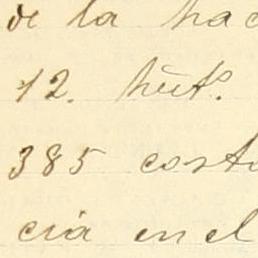 de la hac
12. húts.
385 costa
cia en el